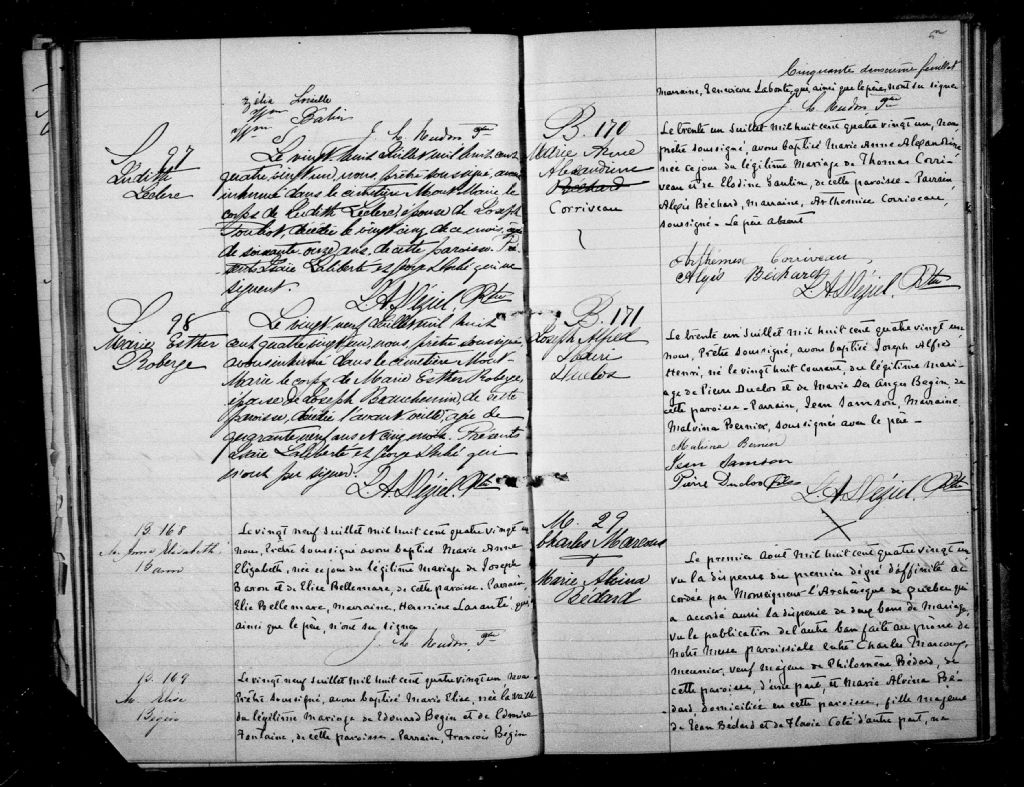 S. 27
Judith
Leclerc
Le vingt huit Juillet mil huit cent
quatre vingt un, nous, prêtre soussigné, avons
inhumé dans le cimetière Mont Marie le
corps de Judith Leclerc, épouse de Joseph
décédée le vingt cinq de ce mois, âgée
de soixante onze ans, de cette paroisse. Pré-
Laliberté et qui ne
signent.
Ptre
S. 28
Marie Esther
Roberge
Le vingt neuf Juillet mil huit
cent quatre vingt un, nous, prêtre soussigné
avons inhumé dans le cimetière Mont-
Marie le corps de Marie Esther Roberge,
épouse de Joseph Beauchemin, de cette
paroisse, décédée l'avant veille, agée de
quarante neuf ans et cinq mois. Présents
Laliberté et qui
n'ont pu signer.
Ptre
B. 168
M. Anna Elisabeth
Baron
Le vingt neuf Juillet mil huit cent quatre vingt un
nous, Prêtre soussigné avons baptisé Marie Anne
Elizabeth, née ce jour du légitime mariage de Joseph
Baron et de Elise Bellemare, de cette paroisse. Parrain,
Elie Bellemare, marraine, Hermine Lasanté, qui,
ainsi que le père, n'ont su signer
Ptre
B. 169
M. Elise
Begin
Le vingt neuf Juillet mil huit cent quatre vingt un nous
Prêtre soussigné, avons baptisé Marie Elise, née la veille
du légitime mariage de Edouard Begin et de
Fontaine, de cette paroisse - Parrain, François Begin
Cinquante deuxième feuillet
marraine, Genevieve Labonté, qui, ainsi que le père, n'ont su signer
Ptre
B. 170
Marie Anne
Alexandrine
Béchard
Corriveau
Le trente un Juillet mil huit cent quatre vingt un, nous
prêtre soussigné, avons baptisé Marie Anne Alexandrine
née ce jour du légitime Mariage de Thomas Corri-
veau et de Elodine Gaulin, de cette paroisse - Parrain,
Alexis Béchard, Marraine, Arthemise Corriveau,
soussigné - Le père absent
Arthémise Corriveau
Alexis Béchard
Ptre
B. 171
Joseph Alfred
Henri
Duclos
Le trente un Juillet mil huit cent quatre vingt un
nous, Prêtre soussigné, avons baptisé Joseph Alfred
Henri, né le vingt huit courant, du légitime mari-
age de Pierre Duclos et de Marie Des Anges Begin, de
cette paroisse - Parrain, Jean Samson, Marraine
Malvina Bernier, soussignés avec le père -
Malvina Bernier
Jean Samson
Pierre Duclos fils
Ptre
M. 29
Charles Marcoux
+
Marie Alvina
Bédard
Le premier Août mil huit cent quatre vingt un
vu la dispense du premier degré d'affinité ac
cordée par Monseigneur l'Archevêque de Québec qui
a accordé aussi la dispense de deux bans de Mariage,
vu la publication de l'autre ban faite au prône de
notre Messe paroissiale entre Charles Marcoux,
meunier, veuf majeur de Philomène Bédard, de
cette paroisse, d'une part, et Marie Alvina Bé-
dard, domiciliée en cette paroisse, fille majeure
de Jean Bédard et de Flavie Coté d'autre part, ne